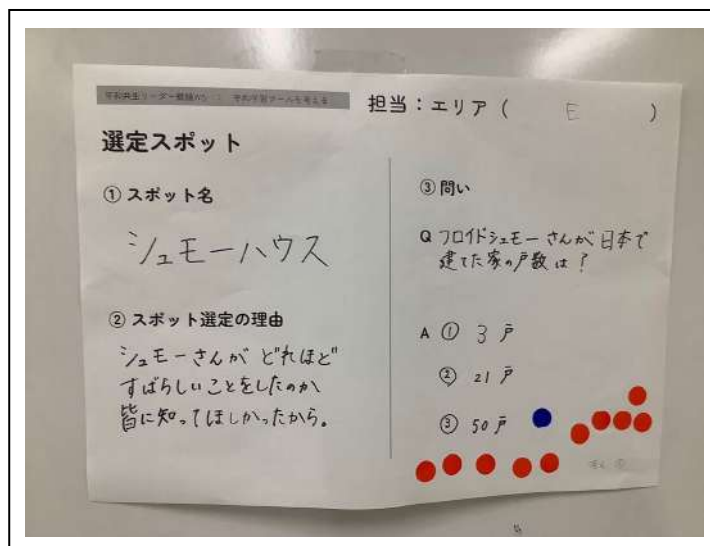 担当：エリア（ E ）
選定スポット
① スポット名
シュモーハウス
② スポット選定の理由
シュモーさんが どれほど
すばらしいことをしたのか
皆に知ってほしかったから。
③ 問い
Q フロイドシュモーさんが日本で
建てた家の戸数は？
A ① 3 戸
② 21 戸
③ 50 戸